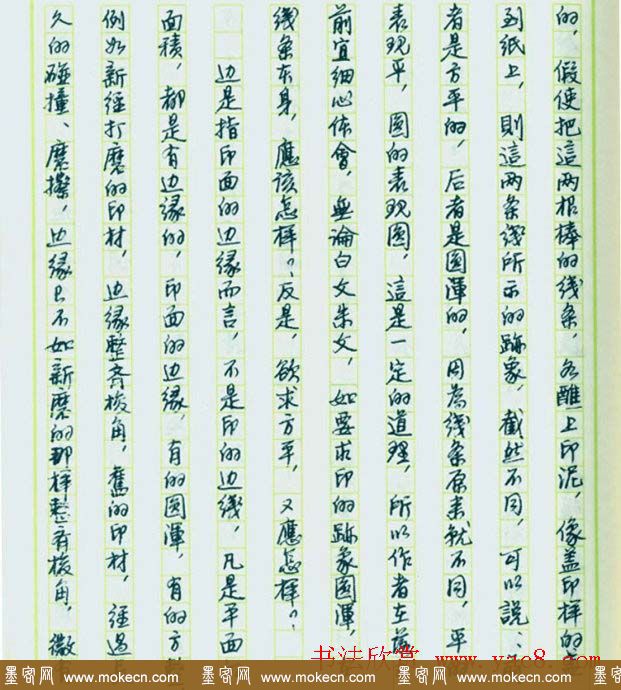 的，假使把這两根棒的线条，各醮上印泥，像盖印样的盖
到纸上，則這两条线所示的跡象，截然不同，可以說：
者是方平的，后者是圆渾的，因为线条原来就不同，平
表现平，圆的表现圆，這是一定的道理，所以作者在落
前宜细心体會，無論白文朱文，如要求印的跡象圆渾，
线条本身，應该怎样？反是，欲求方平，又應怎样？
边是指印面的边缘而言，不是印的边线，凡是平面
面積，都是有边缘的，印面的边缘，有的圆渾，有的方
例如新经打磨的印材，边缘整齐棱角，舊的印材，经過
久的碰撞、磨擦，边缘已不如新磨的那样整齐棱角，微
书法欣赏 www.yac8.com
墨客网 www.mokecn.com 墨客网 www.mokecn.com 墨客网 www.mokecn.com